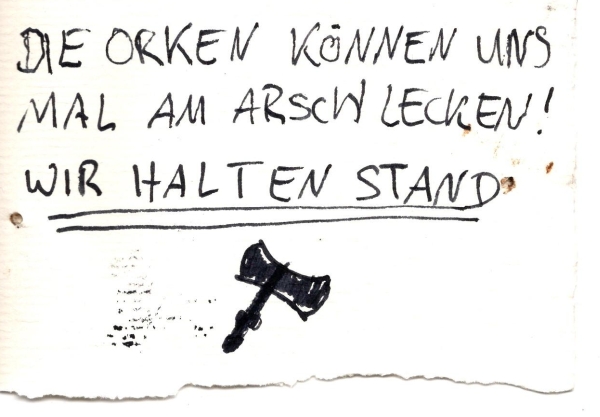 DIE ORKEN KÖNNEN UNS
MAL AM ARSCH LECKEN!
WIR HALTEN STAND